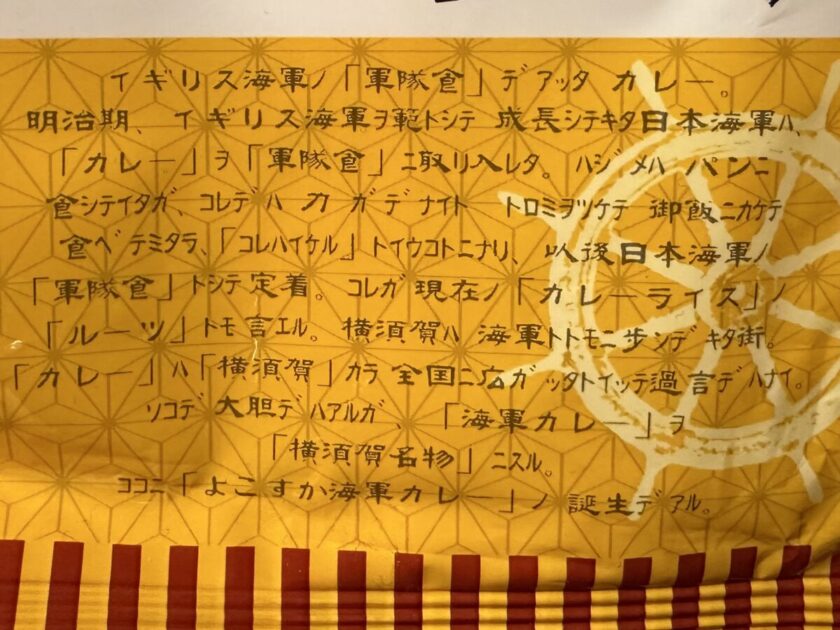 イギリス海軍ノ「軍隊食」デアッタ カレー。
明治期、イギリス海軍ヲ範トシテ 成長シテキタ日本海軍ハ、
「カレー」ヲ「軍隊食」ニ取リ入レタ。ハジメハ パンニ
食シテイタガ、コレデハ 力 ガデナイト トロミヲツケテ 御飯ニカケテ
食ベテミタラ、「コレハイケル」トイウコトニナリ、以後日本海軍ノ
「軍隊食」トシテ定着。コレガ 現在ノ「カレーライス」ノ
「ルーツ」トモ言エル。横須賀ハ 海軍トトモニ歩ンデキタ街。
「カレー」ハ「横須賀」カラ 全国ニ広ガッタトイッテ過言デハナイ。
ソコデ大胆デハアルガ、「海軍カレー」ヲ
「横須賀名物」ニスル。
ココニ「よこすか海軍カレー」ノ 誕生デアル。